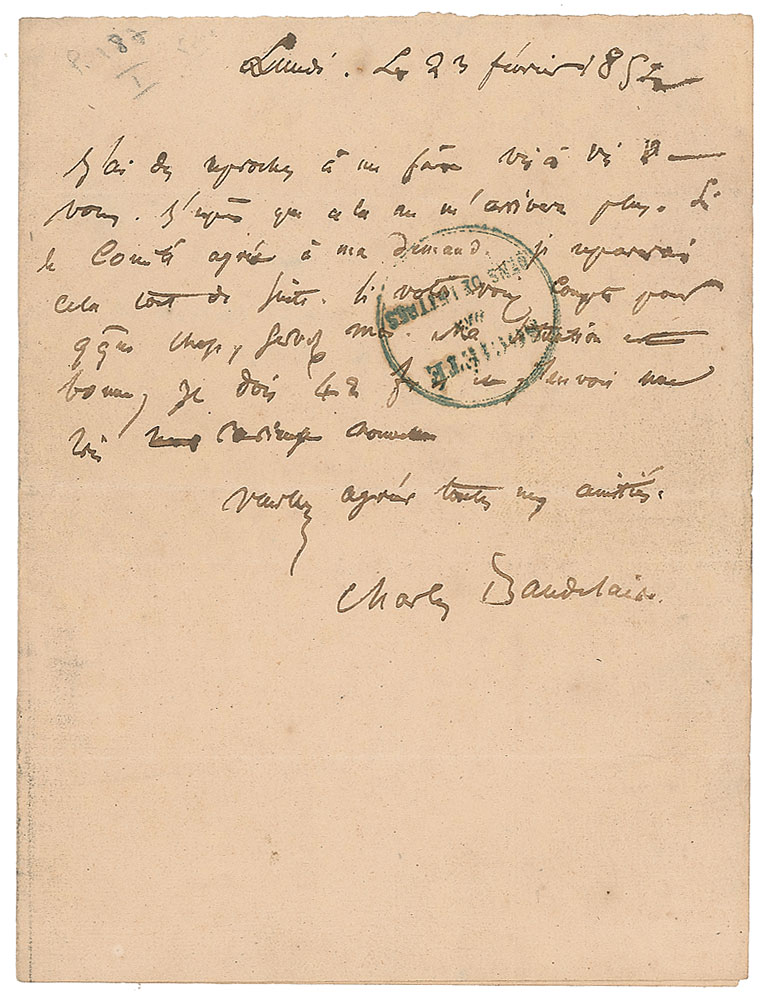 P. 187
I
Lundi. Le 23 février 1852
J'ai des reproches à me faire vis à vis de
vous. J'espère que cela ne m'arrivera plus. Si
le Comité agrée à ma demande, je réparerai
cela tout de suite. Si votre voix compte pour
qque chose, servez moi. Ma situation est
bonne, je dois 42 f. et j'envoie une
nouvelle
Veuillez agréer toutes mes amitiés.
Charles Baudelaire.
SOCIÉTÉ
DES
GENS DE LETTRES